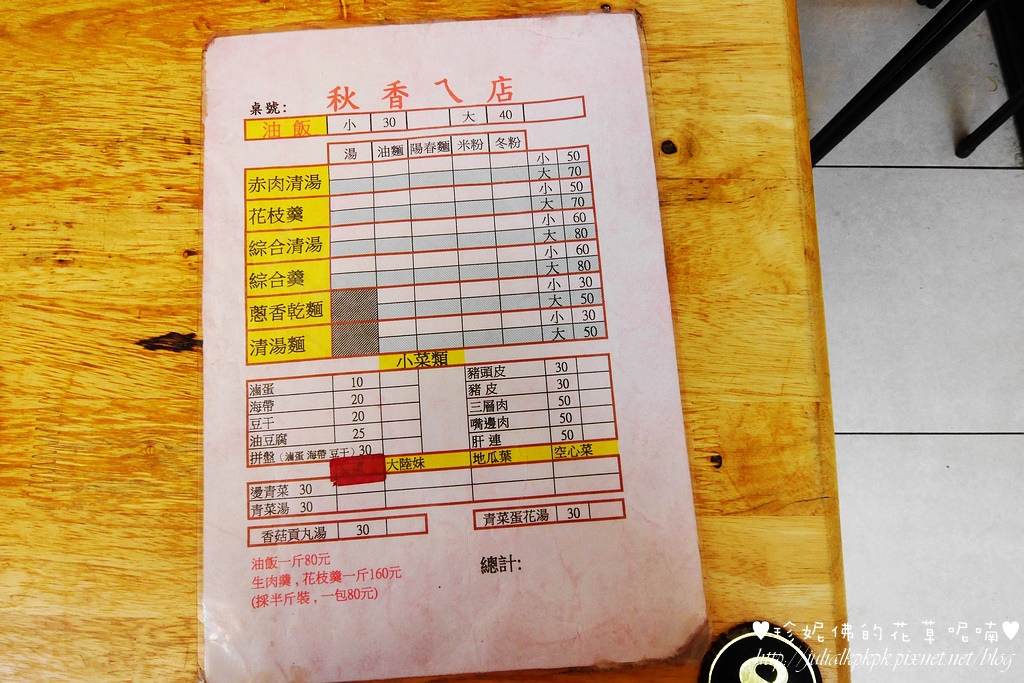 秋香ㄟ店
桌號:
油飯 小 30 大 40
湯 油麵 陽春麵 米粉 冬粉
赤肉清湯 小 50
大 70
花枝羹 小 50
大 70
綜合清湯 小 60
大 80
綜合羹 小 60
大 80
蔥香乾麵 小 30
大 50
清湯麵 小 30
大 50
小菜類
滷蛋 10 豬頭皮 30
海帶 20 豬皮 30
豆干 20 三層肉 50
油豆腐 25 嘴邊肉 50
拼盤(滷蛋 海帶 豆干) 30 肝連 50
大陸妹 地瓜葉 空心菜
燙青菜 30
青菜湯 30
香菇貢丸湯 30 青菜蛋花湯 30
油飯一斤80元
生肉羹,花枝羹一斤160元
(採半斤裝,一包80元)
總計:
♥珍妮佛的花草呢喃♥
http://juliatkpkpk.pixnet.net/blog